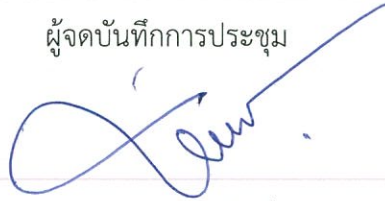 ผู้จดบันทึกการประชุม